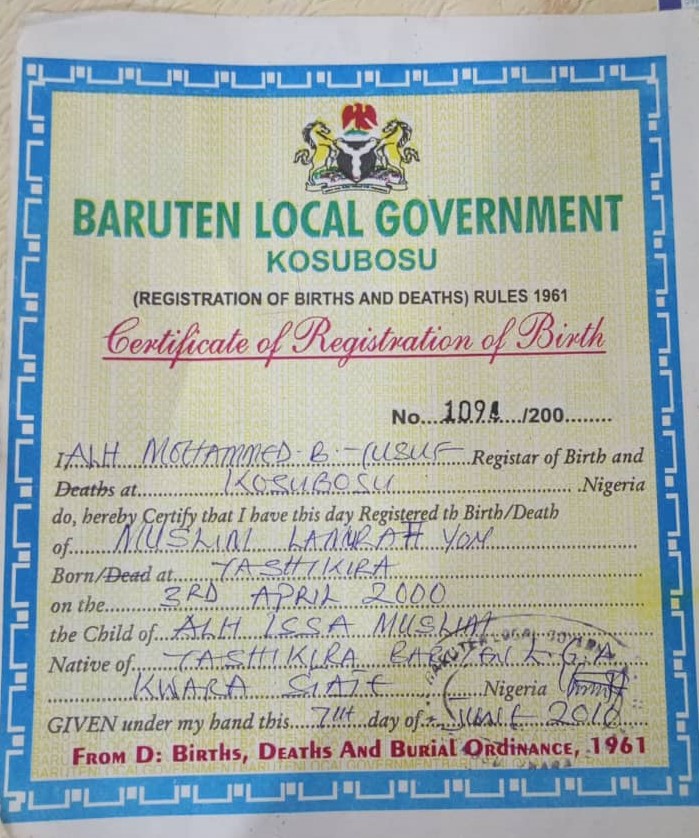 BARUTEN LOCAL GOVERNMENT
KOSUBOSU
(REGISTRATION OF BIRTHS AND DEATHS) RULES 1961
Certificate of Registration of Birth
No....1094..../200........
I, ALH MOHAMMED. B. YUSUF Registar of Birth and
Deaths at KOSUBOSU .Nigeria
do, hereby Certify that I have this day Registered th Birth/Death
of MUSLIM YON
Born/Dead at TASHIKIRA
on the 3RD APRIL 2000
the Child of ALH ISSA MUSLIM
Native of TASHIKIRA BARUTEN L.G.A
KWARA STATE Nigeria
GIVEN under my hand this 7TH day of JUNE 2010
FROM D: BIRTHS, DEATHS AND BURIAL ORDINANCE, 1961